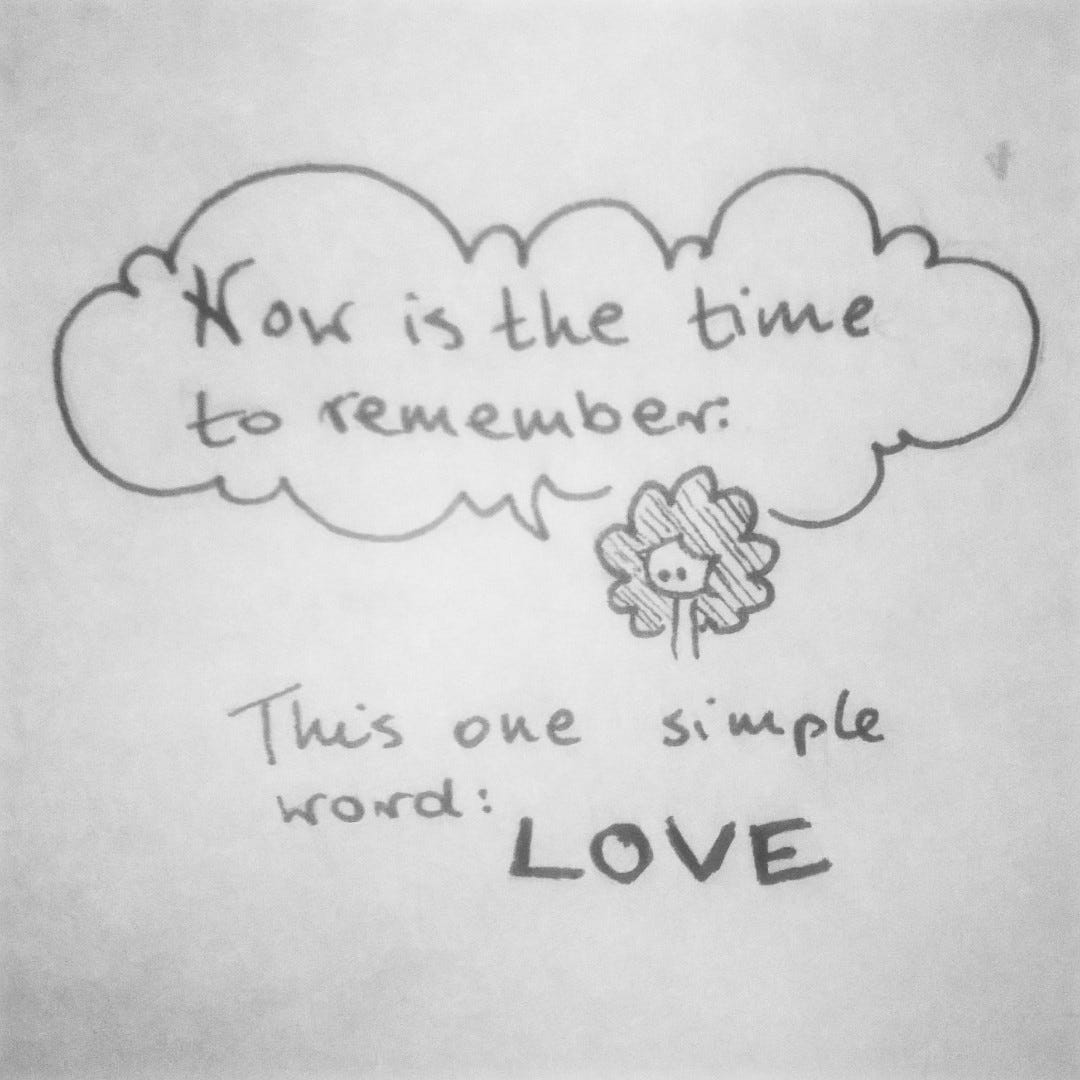 Now is the time
to remember:
This one simple
word:
LOVE